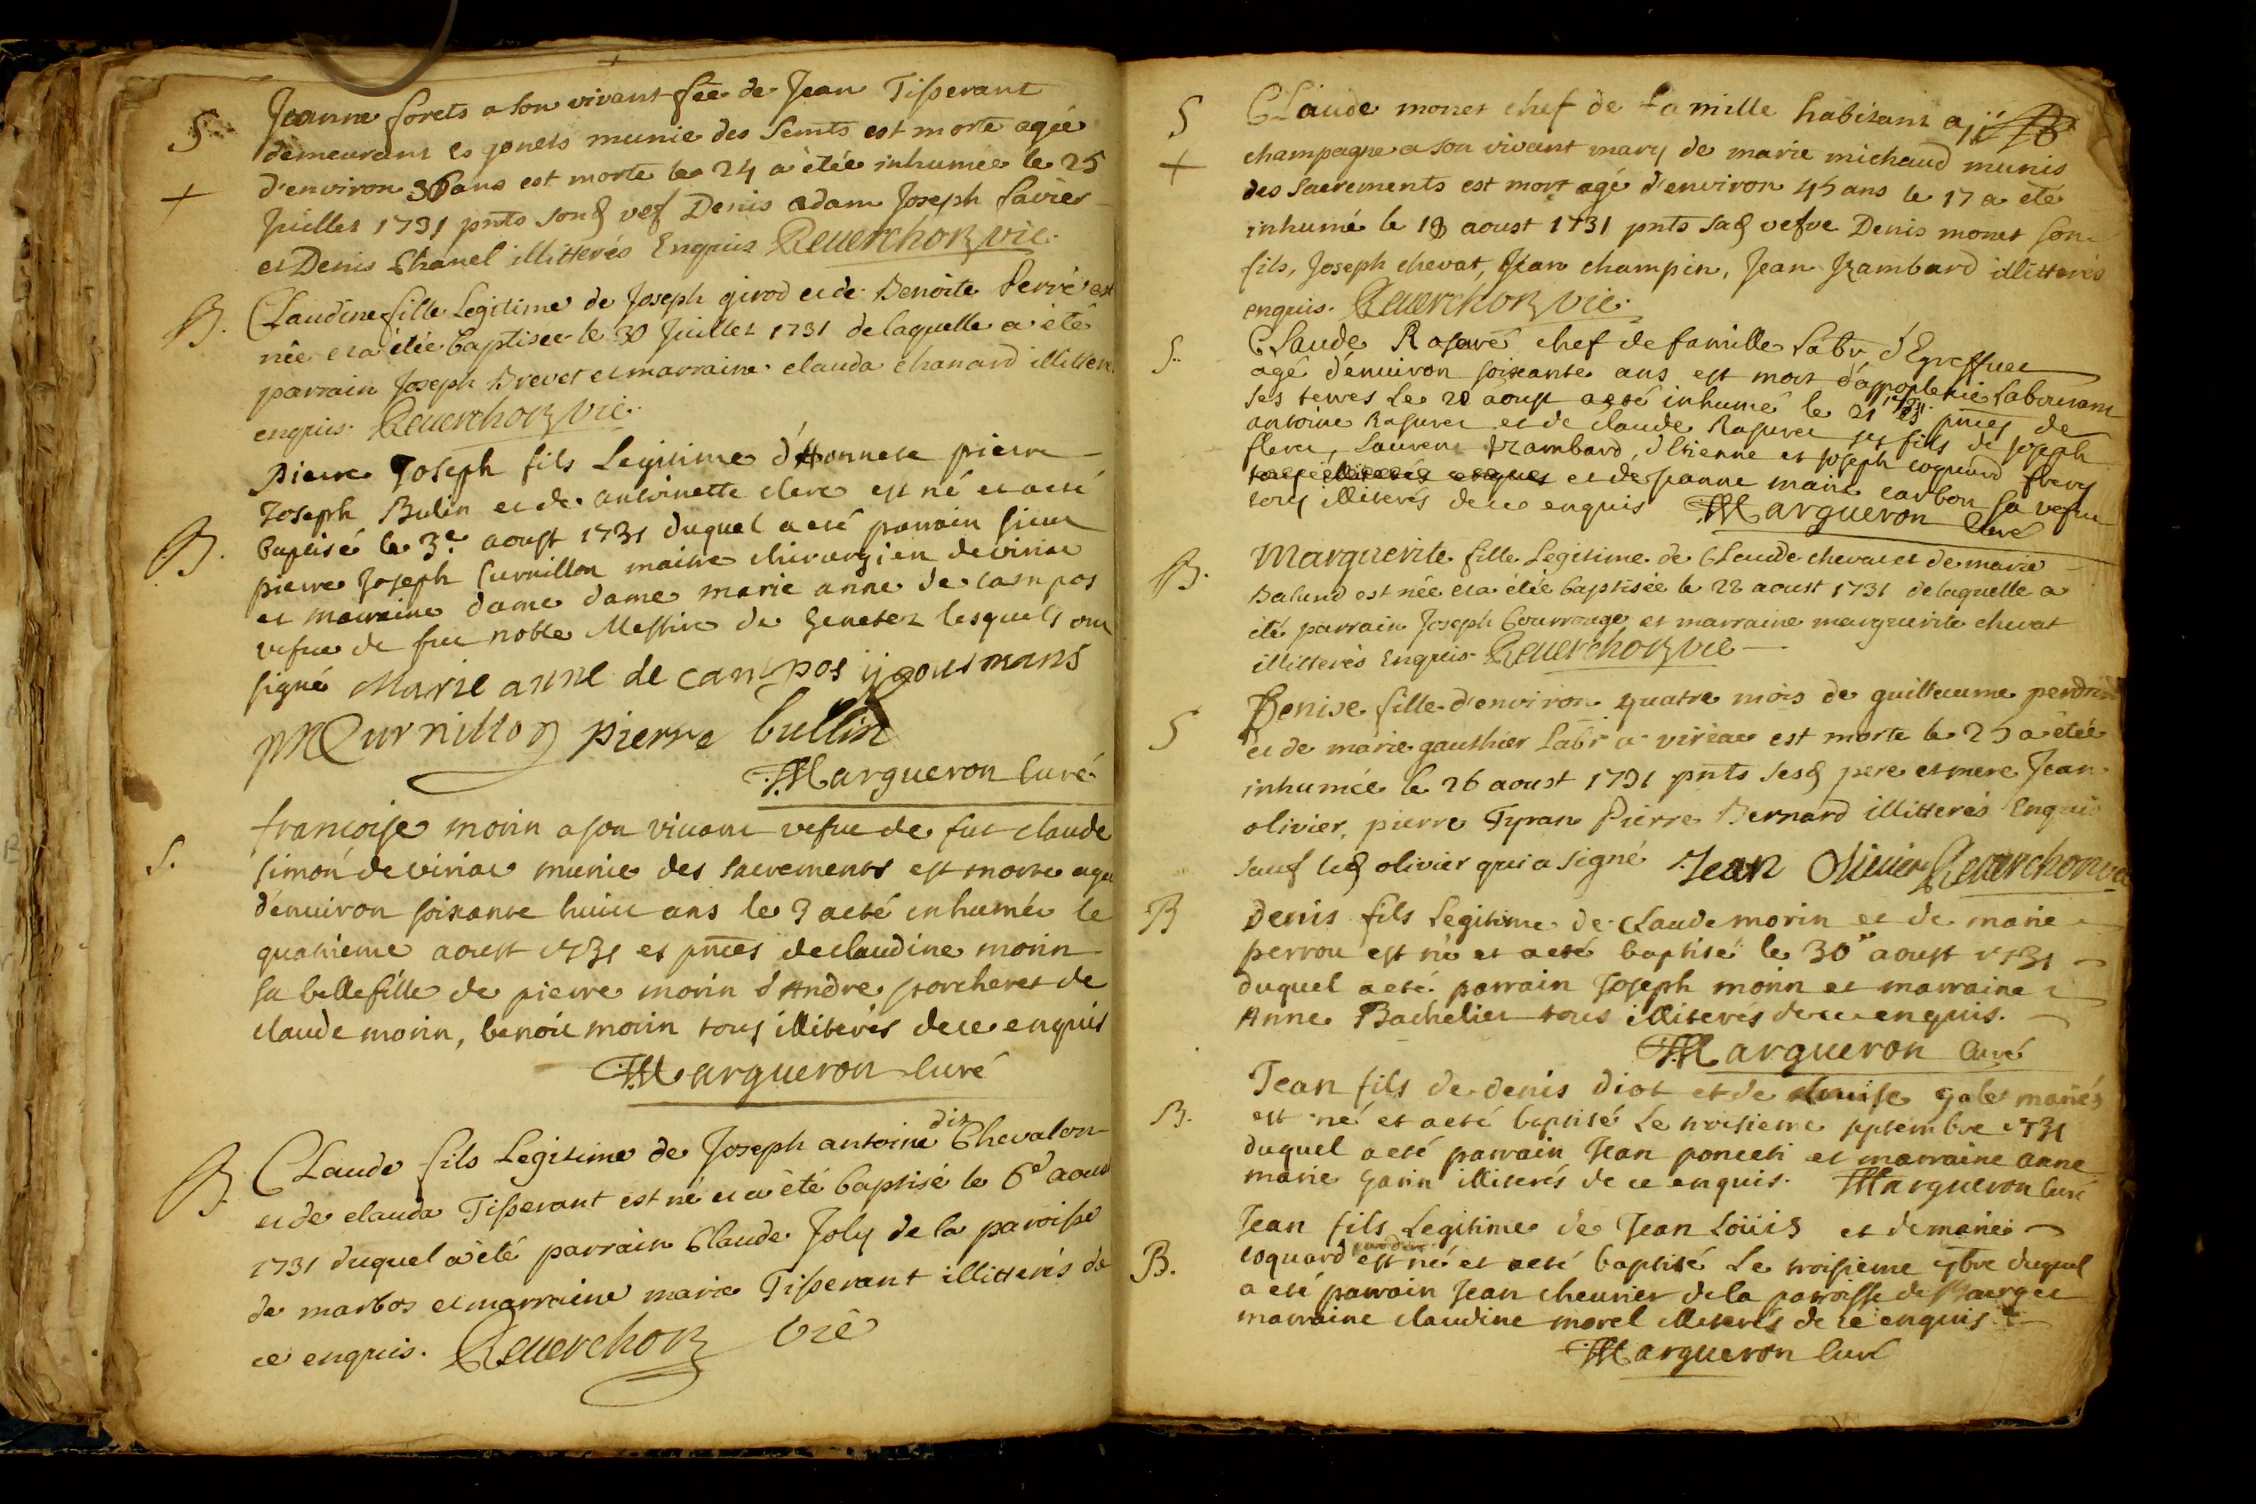 S Jeanne forets a son vivant fée de Jean Tisserant
demeurant es gonets munie des Semts est morte agée
+ d'environ 36 ans est morte le 24 a étée inhumée le 25
Juillet 1731 pnts sond vef Denis adam Joseph favier
et Denis Chanel illitterés Enquis Reverchon vic.
B. Claudine fille Legitime de Joseph girod et de Benoite ferré est
née et a étée baptisée le 30 Juillet 1731 de laquelle a été
parrain Joseph Brevet et marraine clauda chanard illitter.
enquis. Reverchon vic.
pierre Joseph fils Legitime d'Honnete pierre
Joseph Bulin et de antoinette clerc est né et a eté
B. baptisé le 3e aoust 1731 duquel a eté parrain sieur
pierre Joseph Curnillon maitre chirurgien de viriac
et marraine dame dame marie anne de campos
vefue de feu noble Messire de Genetez lesquels ont
signé Marie anne de campos
Curnillon pierre bullin
Margueron Curé
S. francoise morin a son vivant vefue de feu claude
simon de viriac munie des sacrements est morte agée
d'enuiron soixante huict ans le 3 a eté inhumée le
quatrieme aoust 1731 es pnces de claudine morin
sa bellefille de pierre morin d'Andre porcheret de
claude morin, benoit morin tous illiterés de ce enquis
Margueron Curé
B. Claude fils Legitime de Joseph antoine dit Chevalon
et de clauda Tisserant est né et a été baptisé le 6e aoust
1731 duquel a été parrain Claude Joly de la paroisse
de marbos et marraine marie Tisserant illitterés de
ce enquis. Reverchon vic
S Claude monet chef de famille habitant a
+ champagne a son vivant mary de marie michaud munis
des sacrements est mort agé d'environ 45 ans le 17 a été
inhumé le 18 aoust 1731 pnts sad vefve Denis monet son
fils, Joseph chevat, Jean champin, Jean Jzambard illitterés
enquis. Reverchon vic.
S. Claude Rasurel chef de famille Labr
agé d'enuiron soixante ans est mort d'appoplexie labourant
ses terres le 20 aoust a eté inhumé le 21 1731 pnces de
antoine Rasurel et de claude Rasurel ses fils de Joseph
Laurent Jzambard, d'Etienne et Joseph coquard
tous illiterés enquis et de jeanne marie carbon sa vefue
tous illiterés de ce enquis Margueron Curé
B. Marguerite fille Legitime de Claude chevat et de marie
Balund est née et a étée baptisée le 22 aoust 1731 de laquelle a
été parrain Joseph Courrouge et marraine marguerite chevat
illitterés Enquis. Reverchon vic
S Denise fille d'environ quatre mois de guilleaume perdrix
et de marie gauthier Labr a viriac est morte le 25 a étée
inhumée le 26 aoust 1731 pnts sesd pere et mere Jean
olivier, pierre Tyran Pierre Bernard illitterés Enquis
sauf led olivier qui a signé Jean Olivier Reverchon vic
B Denis fils Legitime de Claude morin et de marie
perrou est né et a eté baptisé le 30e aoust 1731
duquel a eté parrain Joseph morin et marraine
Anne Bachelier tous illiterés de ce enquis.
Margueron Curé
Jean fils de denis diot et de galet mariés
B. est né et a eté baptisé Le troisieme septembre 1731
duquel a eté parrain Jean poncet et marraine anne
marie Garin illiterés de ce enquis. Margueron Curé
Jean fils Legitime de Jean Loüis et de marie
B. coquard est né et a eté baptisé Le troisieme 7bre duquel
a eté parrain Jean cheurier de la paroisse de Bourg et
marraine claudine morel illiterés de ce enquis
Margueron Curé